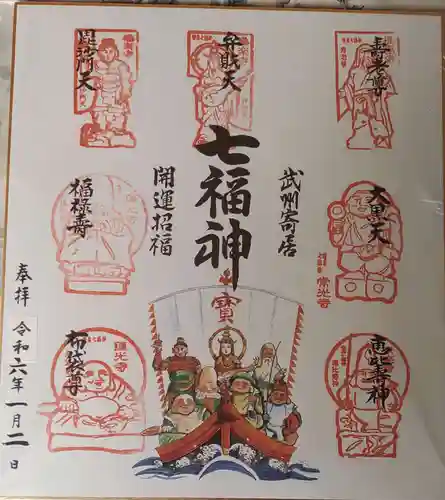 寿老尊
弁財天
毘沙門天
七福神
武州寄居
開運招福
大黒天
福禄寿
恵比寿神
布袋尊
寳
奉拝 令和六年一月二日